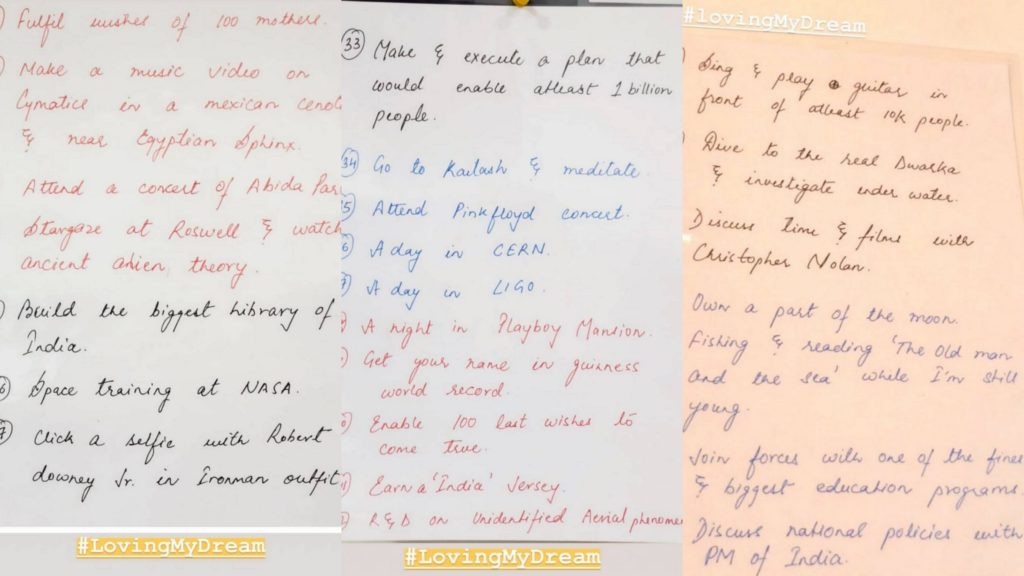 Fulfil wishes of 100 mothers.
Make a music video on
Cymatics in a mexican cenot
& near Egyptian Sphinx.
Attend a concert of Abida Par
Stargaze at Roswell & watch
ancient alien theory.
Build the biggest library of
India.
Space training at NASA.
Click a selfie with Robert
downey Jr. in Ironman outfit
#LovingMyDream
33 Make & execute a plan that
would enable atleast 1 billion
people.
34 Go to Kailash & meditate.
5 Attend Pinkfloyd concert.
6 A day in CERN.
7 A day in LIGO.
A night in Playboy Mansion.
Get your name in guinness
world record.
Enable 100 last wishes to
come true.
Earn a 'India' Jersey.
R&D on Unidentified Aerial phenome
#LovingMyDream
#lovingMyDream
Sing & play guitar in
front of atleast 10K people.
Dive to the real Dwarka
& investigate under water.
Discuss time & films with
Christopher Nolan.
Own a part of the moon.
Fishing & reading 'The Old man
and the sea' while I'm still
young.
Join forces with one of the fines
& biggest education programs.
Discuss national policies with
PM of India.